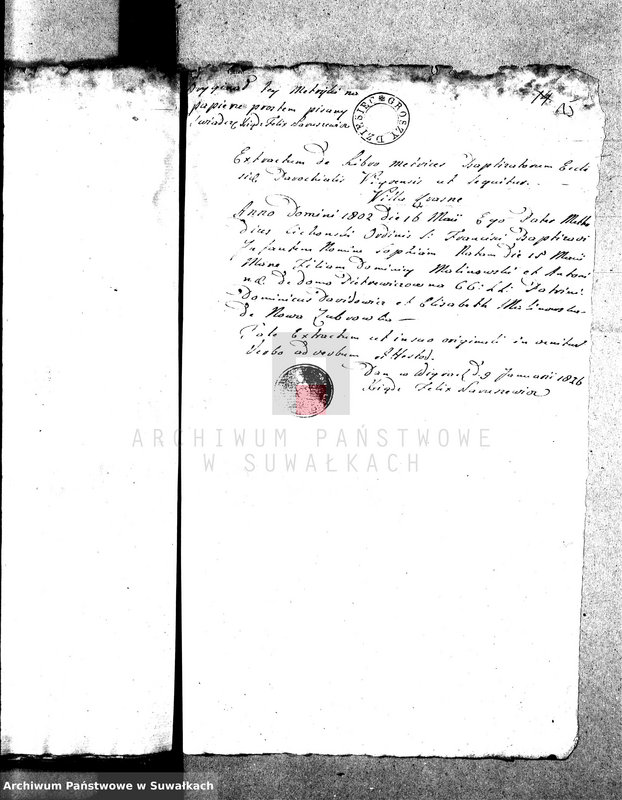 Oryginał tey Metryki na
papierze prostem pisany
świadczę Xiądz Felix Saruszewicz
DZIESIĘĆ GROSZY
74
Extractum de Libro metrices Baptizatorum Eccle
siæ Parochialis Vigrensis ut sequitur. –
Wilke Krasne
Anno Domini 1802 die 16 Maii Ego Pater
Cichonski Ordinis S: Francisci Baptizavi
Infantem Nomine Sophiam Natam die 15 Maii
Mane Filiam Dominici Malinowski et Antoni
næ de domo Pietrewiczowna CC: LL: Patrini
Dominicus Davidowicz et Elisabeth Malinowska
de Nowa –
Tale Extractum ut in suo originali in
Verbo ad verbum attestor.
Dan w d. 9 Januarii 1826
Xiądz Felix Saruszewicz
ARCHIWUM PAŃSTWOWE
W SUWAŁKACH
Archiwum Państwowe w Suwałkach